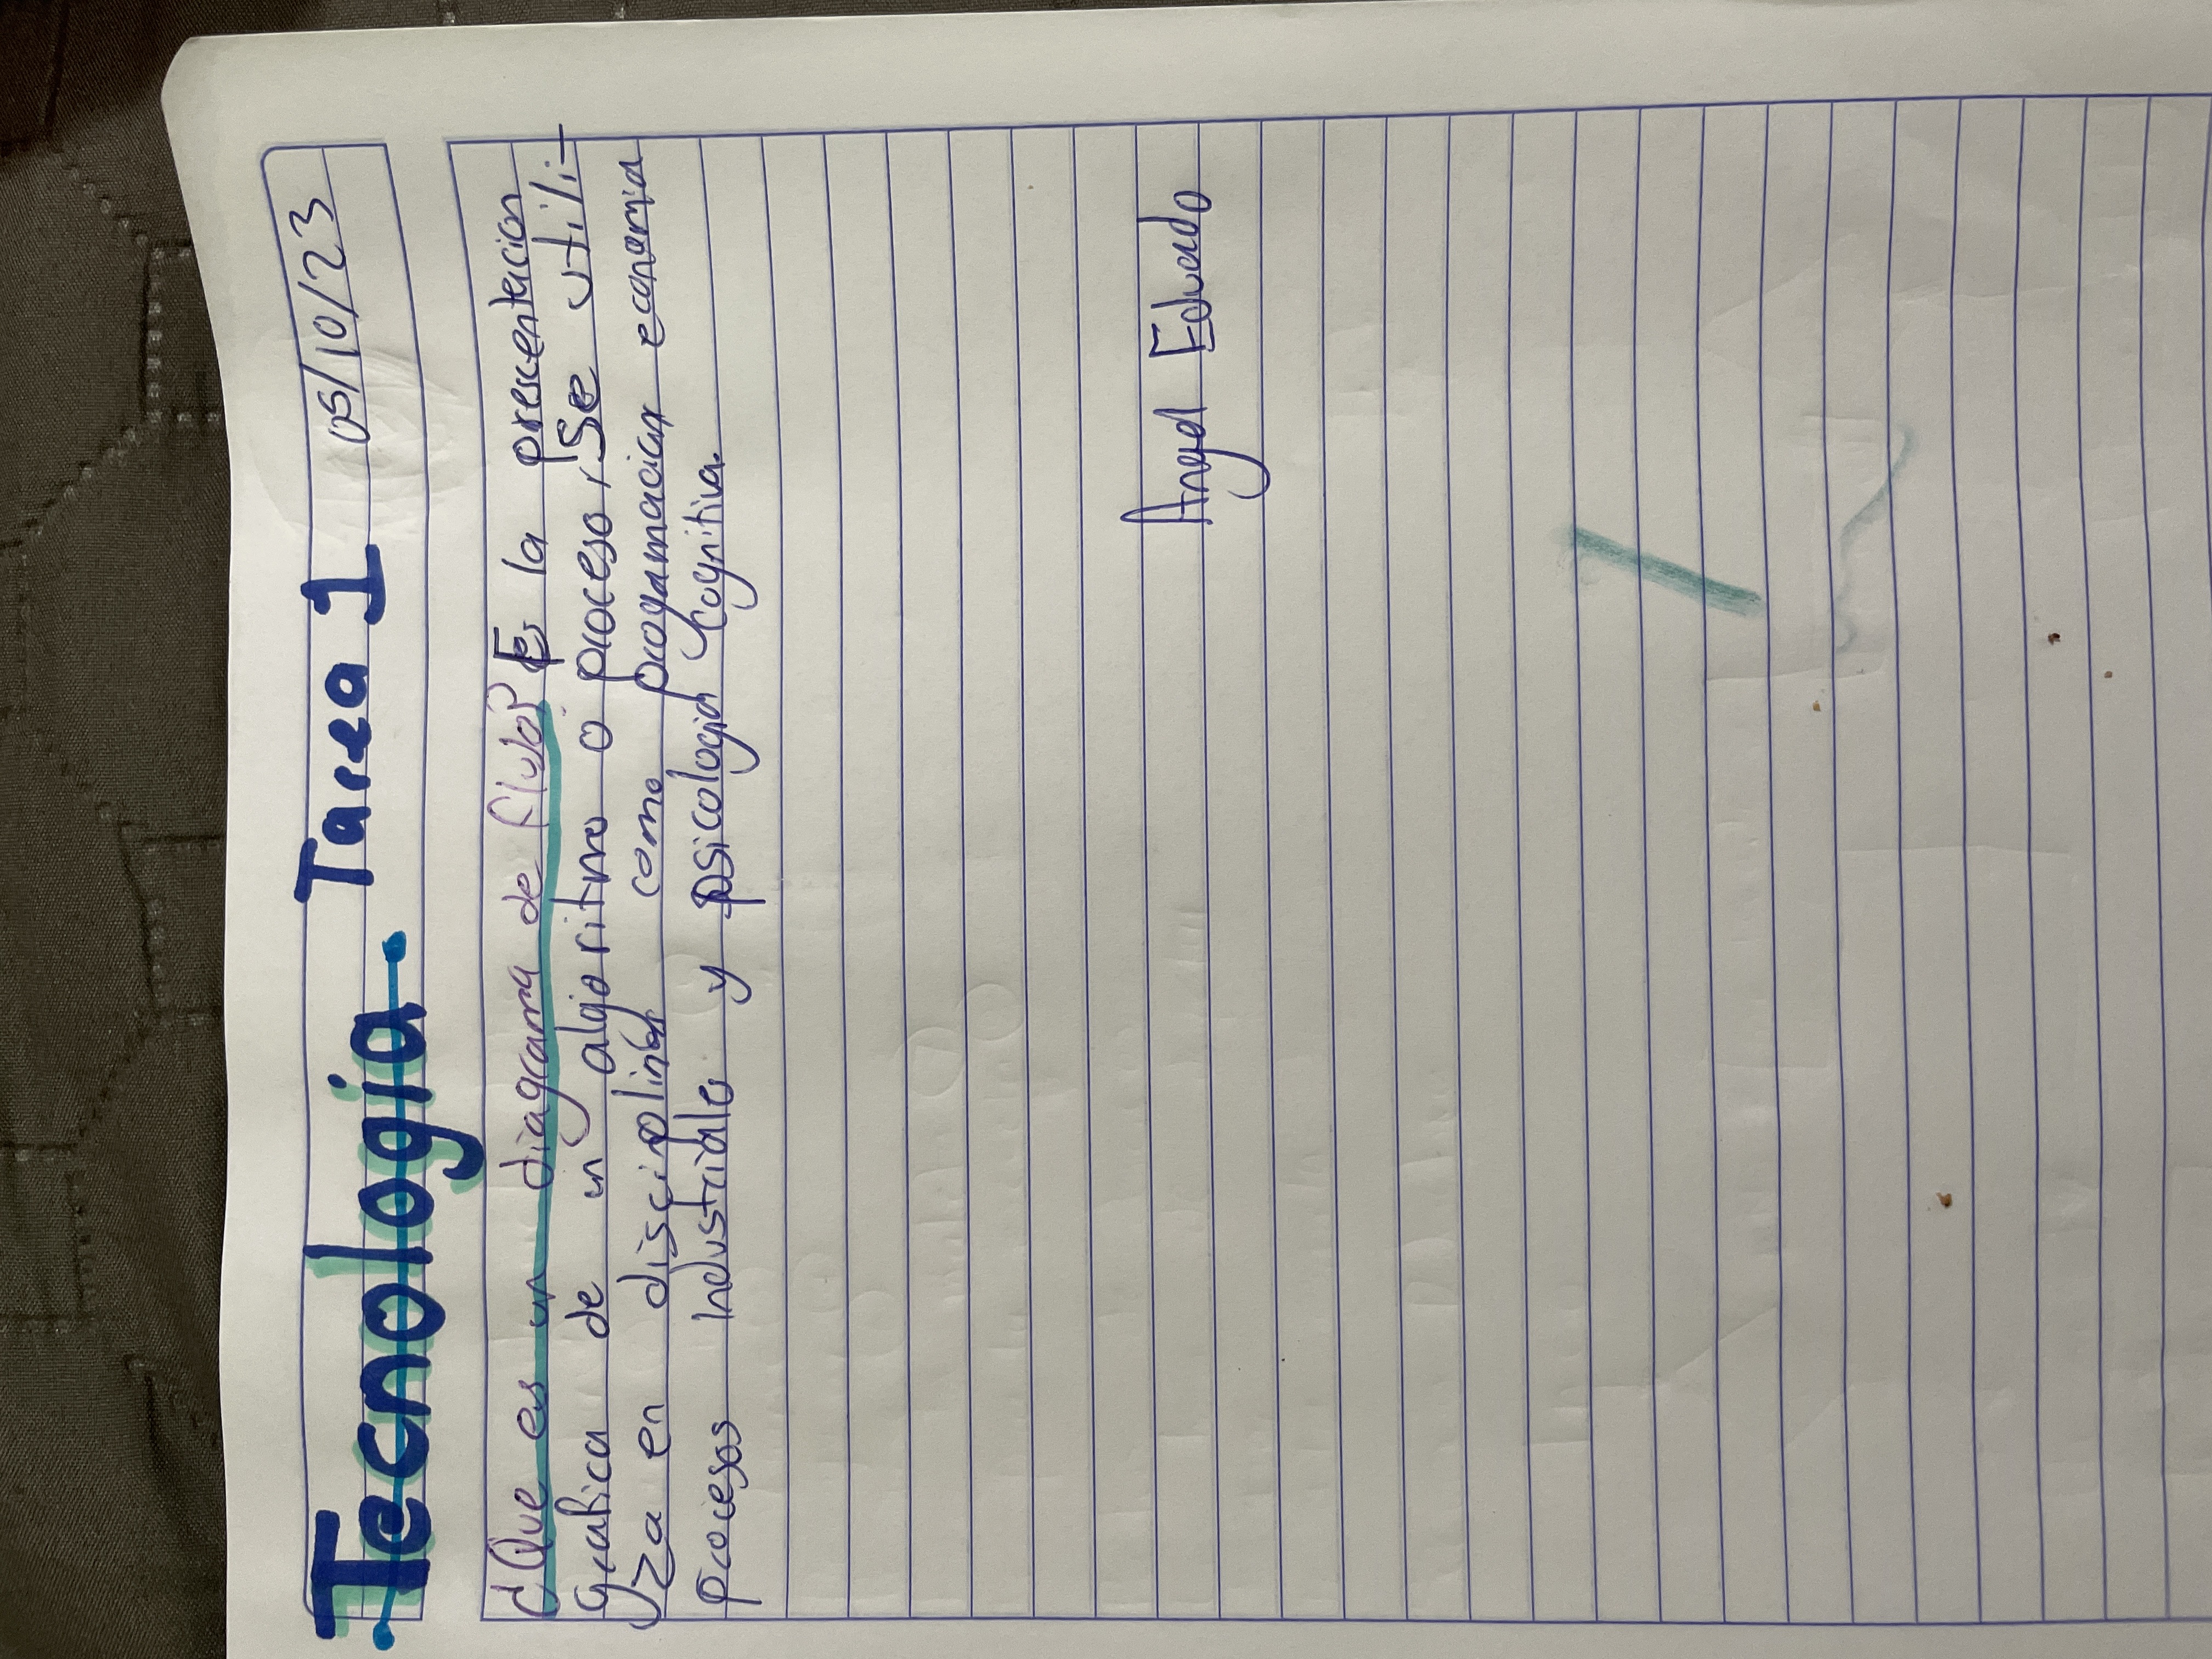 Tecnologia Tarea 1 05/10/23
¿Que es un diagrama de flujo? Es la prescentacion
grafica de un algoritmo o proceso, Se utili-
za en disciplinas como progamacion economia
procesos Industriales y psicologia Cognitiva.
Angel Eduardo